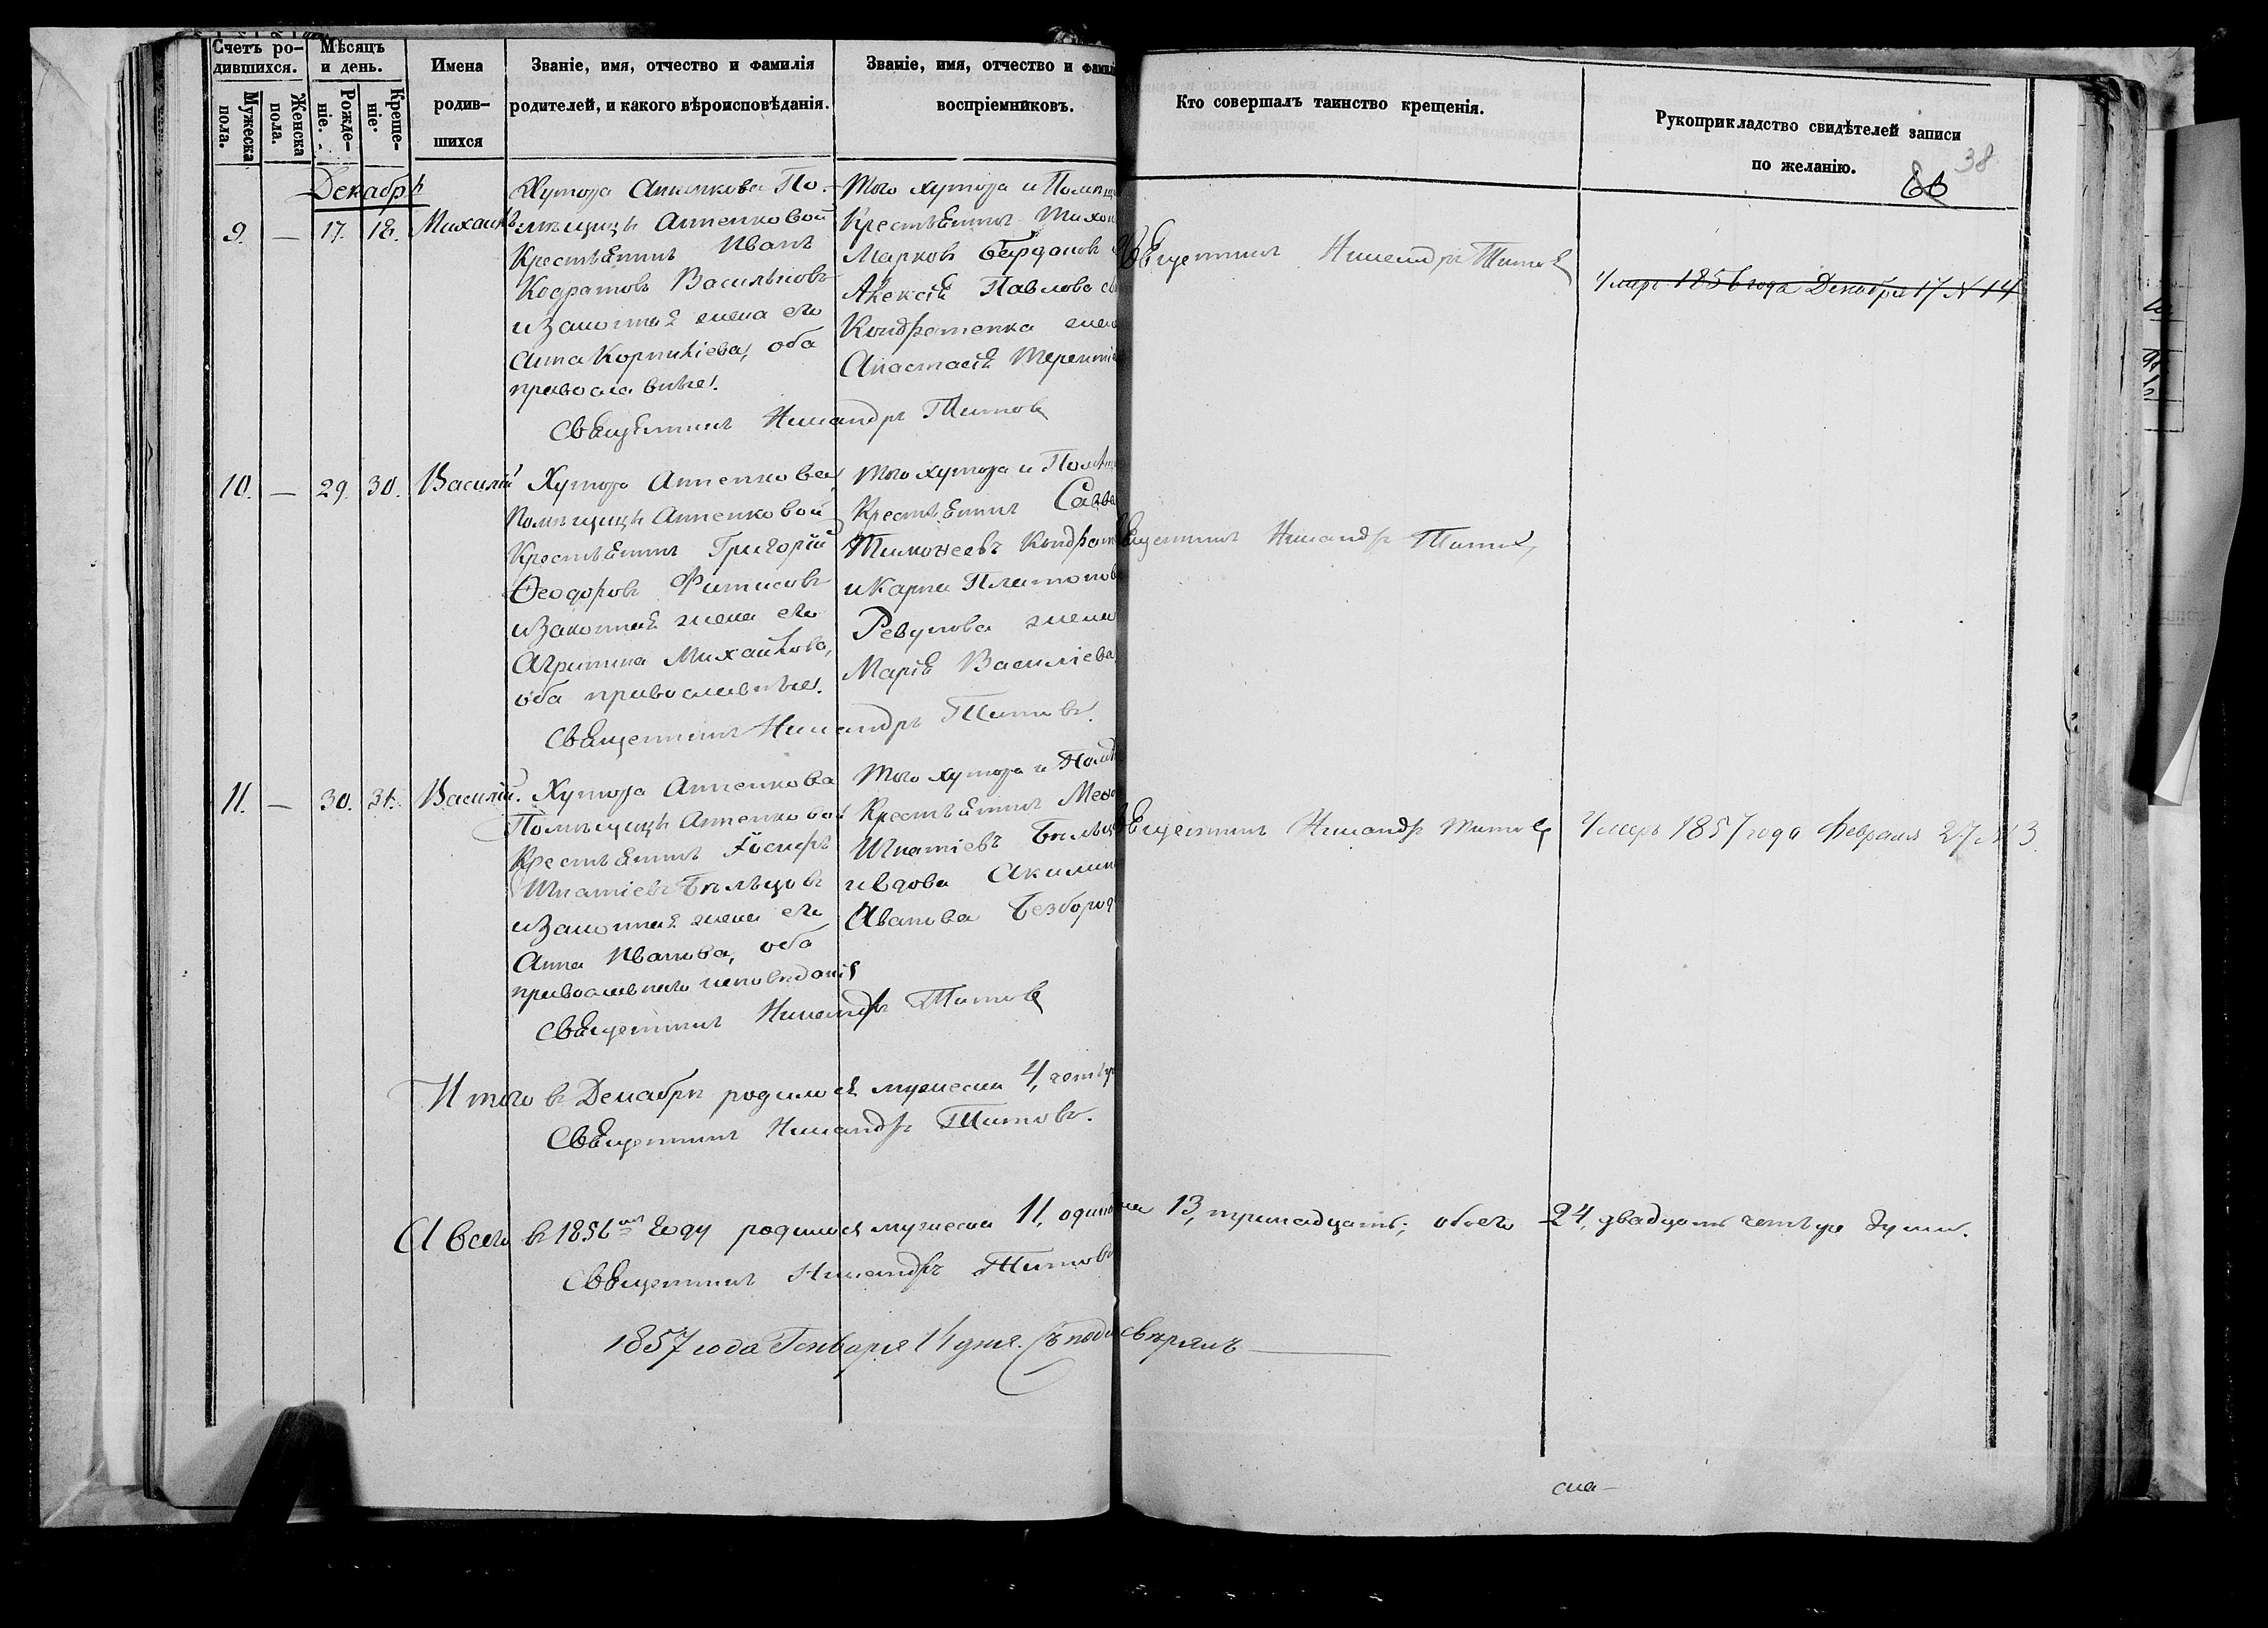 Счетъ ро-
дившихся.
Мѣсяцъ
и день.
Мужеска
пола.
Женска
пола.
Рожде-
ніе.
Креще-
ніе.
Имена
родив-
шихся
Званіе, имя, отчество и фамилія
родителей, и какого вѣроисповѣданія.
Званіе, имя, отчество и фами
воспріемниковъ.
Кто совершалъ таинство крещенія.
Рукоприкладство свидѣтелей записи
по желанію.
38
Декабрь
9. — 17. 18. Михаилъ
Хутора Анненкова По-
мѣщицы Анненковой
Крестьянинъ Иванъ
Кодратовъ Васильковъ
и Законная жена его
Анна Корниліева, оба
православные.
Того хутора и Помѣщ
Крестьянинъ Тихон
Марковъ Бардаковъ
Алексѣя Павлова
Кондратенка жена
Анастасія Терентіе
Священникъ Никандръ Титовъ
Священникъ Никандръ Титовъ
Умеръ 1856 года Декабря 17 № 14
10. — 29. 30. Василій
Хутора Анненкова
Помѣщицы Анненковой
Крестьянинъ Григорій
Ѳеодоровъ Фитисовъ
и Законная жена его
Агрипина Михайлова,
оба православные.
Того хутора и Помѣщ
Крестьянинъ Савва
Тимоѳеевъ Кондрат
и Карпа Платонов
Ревунова жена
Марія Василіева
Священникъ Никандръ Титовъ.
щенникъ Никандръ Титовъ
11. — 30. 31. Василій.
Хутора Анненкова
Помѣщицы Анненковой
Крестьянинъ Іосифъ
Игнатіевъ Бѣлецовъ
и Законная жена его
Анна Иванова, оба
православнаго исповѣданія
Того хутора и Помѣ
Крестьянинъ
Игнатіевъ Бѣлец
и вдова Акилин
Иванова Безбород
Священникъ Никандръ Титовъ
Священникъ Никандръ Титовъ
Умеръ 1857 года Февраля 27 № 3.
Итого въ Декабрѣ родилося мужеска 4, четыре
Священникъ Никандръ Титовъ.
А всего въ 1856мъ Году родилося мужеска 11, один 13, тринадцать; обоего 24, двадцать четыре души.
Священникъ Никандръ Титовъ
1857 года Генваря 14 дня. Съ подл свѣрялъ